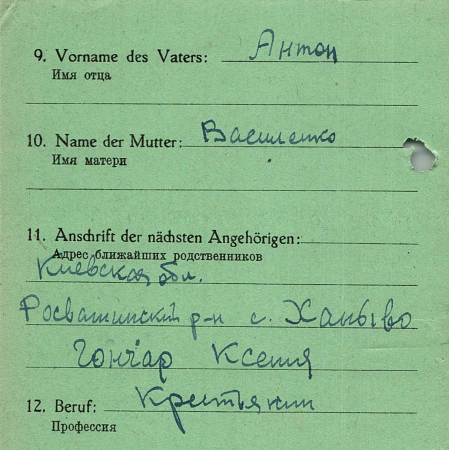 9. Vorname des Vaters: Антон
Имя отца
10. Name der Mutter: Василенко
Имя матери
11. Anschrift der nächsten Angehörigen:
Адрес ближайших родственников
Киевская обл.
р-н с.
Гончар Ксения
12. Beruf: Крестьянин
Профессия